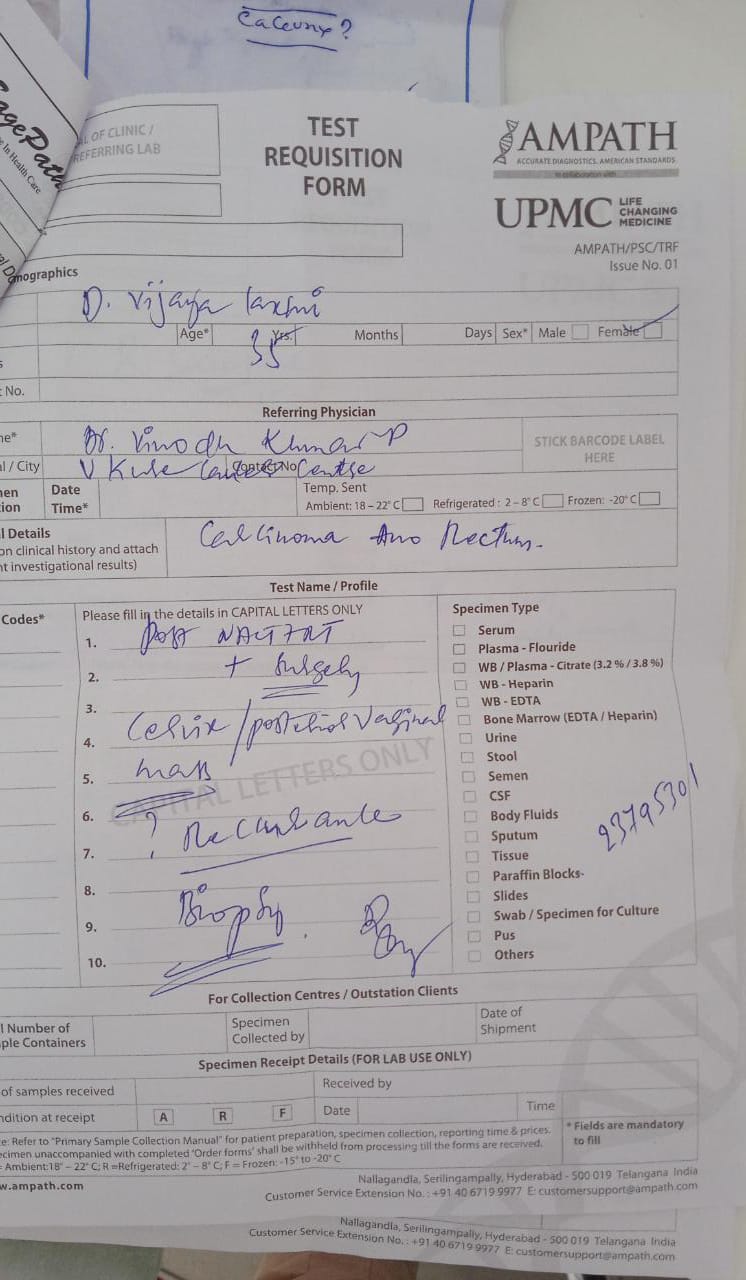 ?
agePath
e In Health Care
AL OF CLINIC /
REFERRING LAB
TEST
REQUISITION
FORM
AMPATH
ACCURATE DIAGNOSTICS. AMERICAN STANDARDS.
In collaboration with
UPMC LIFE CHANGING MEDICINE
AMPATH/PSC/TRF
Issue No. 01
mographics
D. Vijaya laxmi
Age* 35 Yrs. Months Days Sex* Male Female
No.
Referring Physician
me* Dr. Vinodh Kumar P
STICK BARCODE LABEL
HERE
al / City V Kure Cancer Centre
Contact No
men Date
ion Time*
Temp. Sent
Ambient: 18 – 22° C Refrigerated : 2 – 8° C Frozen: -20° C
l Details
on clinical history and attach
t investigational results)
Carcinoma Ano Rectum.
Test Name / Profile
Codes*
Please fill in the details in CAPITAL LETTERS ONLY
1. post NACTRT
2. + Surgery
3.
4. Cervix / posterior vaginal
5. mass
CAPITAL LETTERS ONLY
6. ? Recurrance
7.
8.
9. Biopsy.
10.
Specimen Type
Serum
Plasma - Flouride
WB / Plasma - Citrate (3.2 % / 3.8 %)
WB - Heparin
WB - EDTA
Bone Marrow (EDTA / Heparin)
Urine
Stool
Semen
CSF
Body Fluids
Sputum
Tissue
Paraffin Blocks-
Slides
Swab / Specimen for Culture
Pus
Others
23795301
For Collection Centres / Outstation Clients
l Number of
ple Containers
Specimen
Collected by
Date of
Shipment
Specimen Receipt Details (FOR LAB USE ONLY)
of samples received
Received by
ndition at receipt A R F Date Time
* Fields are mandatory
to fill
e: Refer to "Primary Sample Collection Manual" for patient preparation, specimen collection, reporting time & prices.
ecimen unaccompanied with completed 'Order forms' shall be withheld from processing till the forms are received.
= Ambient:18° – 22° C; R =Refrigerated: 2° – 8° C; F = Frozen: -15° to -20° C
w.ampath.com
Nallagandla, Serilingampally, Hyderabad - 500 019 Telangana India
Customer Service Extension No. : +91 40 6719 9977 E: customersupport@ampath.com
Nallagandla, Serilingampally, Hyderabad - 500 019 Telangana India
Customer Service Extension No. : +91 40 6719 9977 E: customersupport@ampath.com